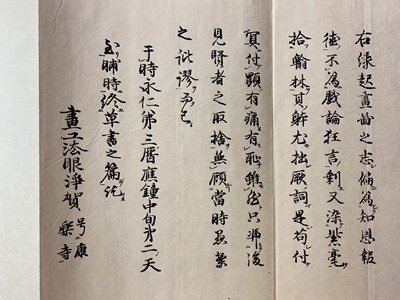 右縁起畫啚之志偏為知恩報
徳不為戯論狂言剰又染紫毫
拾翰林其躰尤拙厥詞是苟付
冥付顕有痛有恥雖然只馮後
見賢者之取捨無顧當時愚案
之訛謬而已
于時永仁第三暦應鐘中旬第二天
至晡時終草書之篇訖
畫工法眼淨賀 号康
樂寺